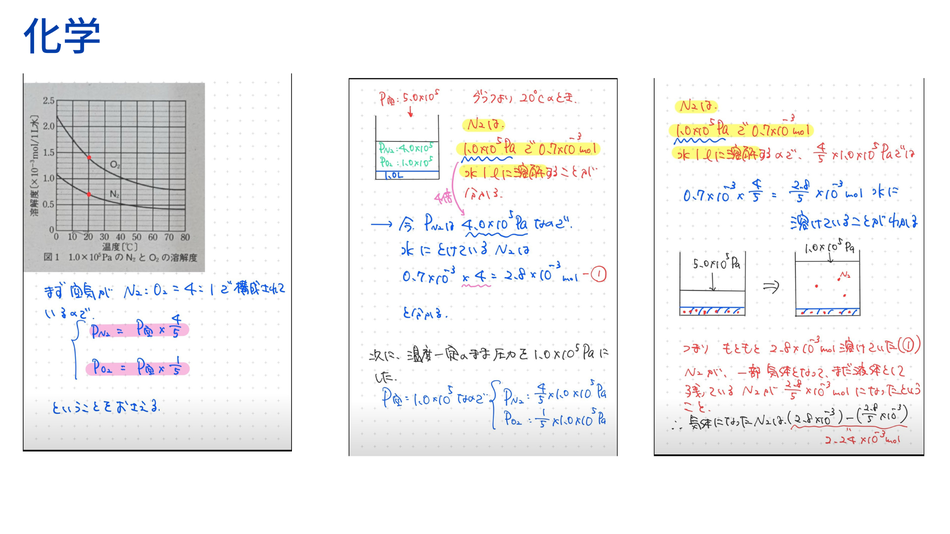 化学
2.5
2.0
1.5
1.0
0.5
0
溶解度[×10⁻³mol/1L水]
O₂
N₂
0 10 20 30 40 50 60 70 80
温度[℃]
図1 1.0×10⁵PaのN₂とO₂の溶解度
まず空気が N₂:O₂=4:1で構成されて
いるので.
P_N₂ = P_空 × 4/5
P_O₂ = P_空 × 1/5
ということをおさえる.
P_空:5.0×10⁵
P_N₂:4.0×10⁵
P_O₂:1.0×10⁵
1.0L
グラフより 20℃のとき.
N₂は.
1.0×10⁵Paで0.7×10⁻³mol
水1lに溶解することが
分かる.
4倍
→ 今. P_N₂は4.0×10⁵Paなので
水にとけているN₂は
0.7×10⁻³×4=2.8×10⁻³mol-①
と分かる.
次に、温度一定のまま圧力を1.0×10⁵Paに
した.
P_空:1.0×10⁵なので
P_N₂:4/5×1.0×10⁵Pa
P_O₂:1/5×1.0×10⁵Pa
N₂は.
1.0×10⁵Paで0.7×10⁻³mol
水1lに溶解するので、4/5×1.0×10⁵Paでは
0.7×10⁻³×4/5=2.8/5×10⁻³mol水に
溶けていることがわかる
5.0×10⁵Pa
⇒
1.0×10⁵Pa
N₂
つまり もともと 2.8×10⁻³mol溶けていた(①)
N₂が、一部気体となって、まだ液体として
残っているN₂が2.8/5×10⁻³molになったという
こと.
∴気体になったN₂は(2.8×10⁻³)-(2.8/5×10⁻³)
2.24×10⁻³mol